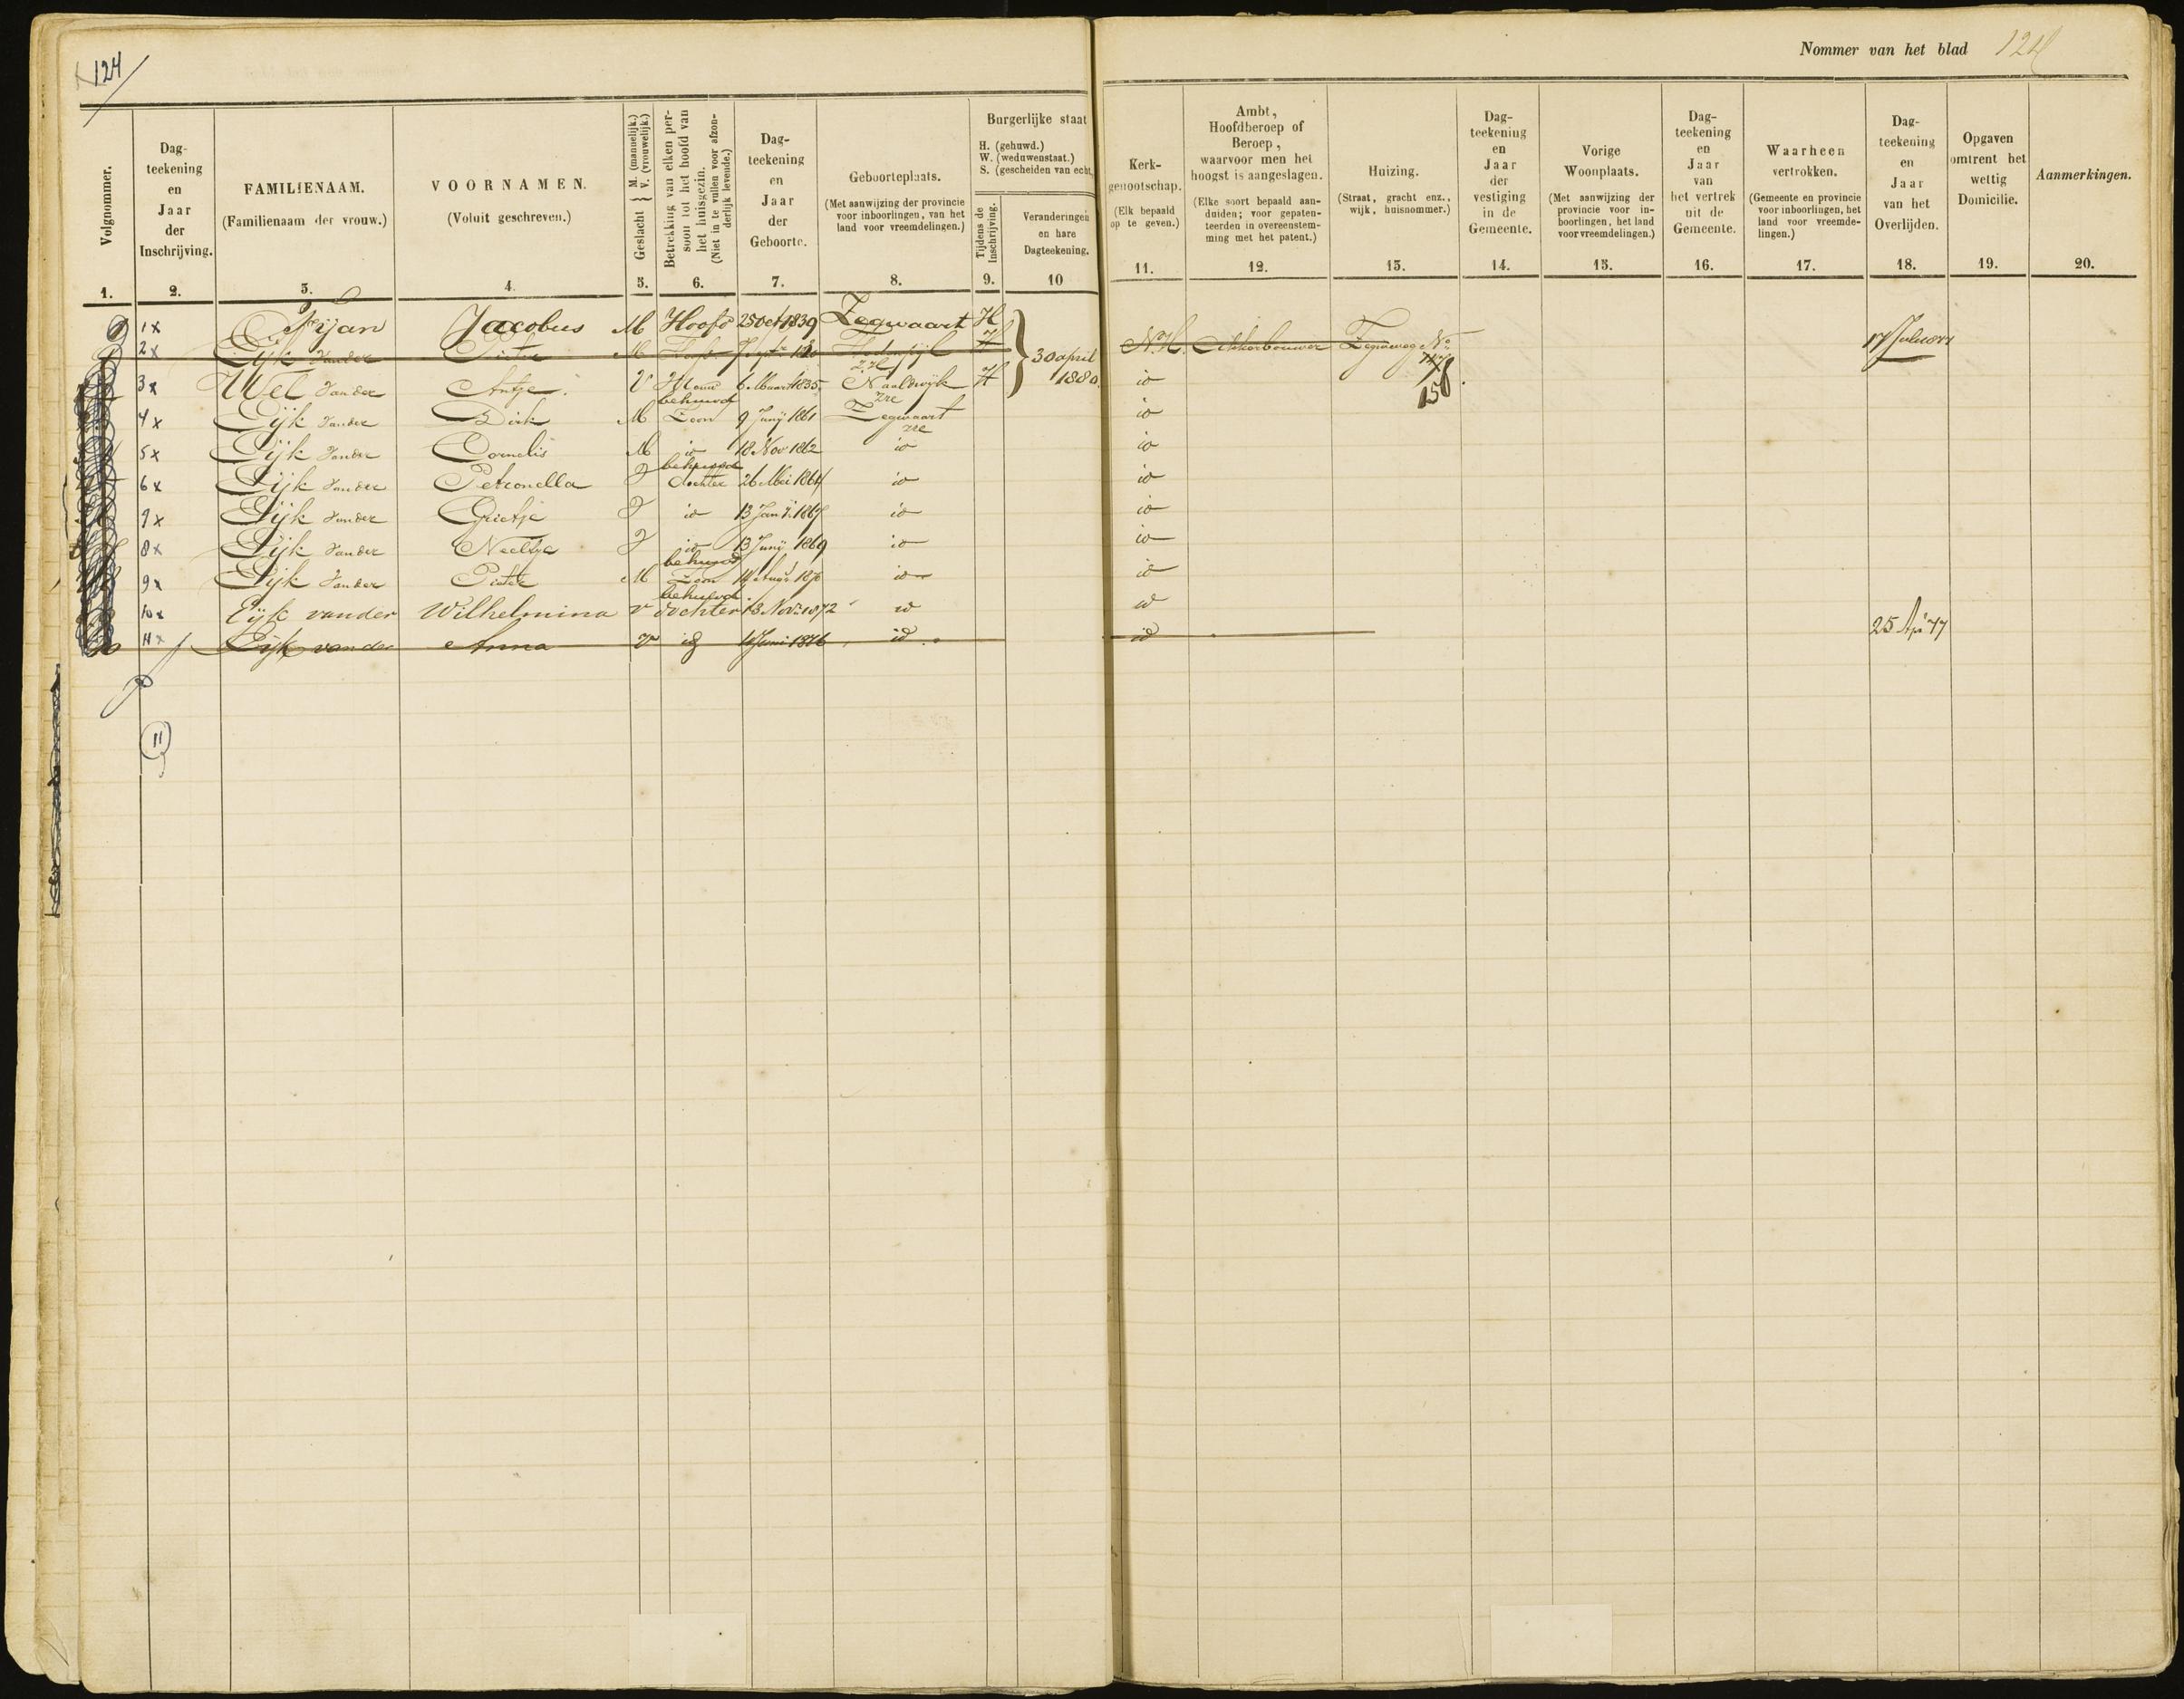 124
Nommer van het blad 124
Volgnommer.
1.
Dag-
teekening
en
Jaar
der
Inschrijving.
2.
FAMILIENAAM.
(Familienaam der vrouw.)
3.
VOORNAMEN.
(Voluit geschreven.)
4.
Geslacht { M. (mannelijk.)
V. (vrouwelijk.)
5.
Betrekking van elken per-
soon tot het hoofd van
het huisgezin.
(Niet in te vullen voor afzon-
derlijk levende.)
6.
Dag-
teekening
en
Jaar
der
Geboorte.
7.
Geboorteplaats.
(Met aanwijzing der provincie
voor inboorlingen, van het
land voor vreemdelingen.)
8.
Burgerlijke staat
H. (gehuwd.)
W. (weduwenstaat.)
S. (gescheiden van echt.
Tijdens de
Inschrijving.
9.
Veranderingen
en hare
Dagteekening.
10
Kerk-
genootschap.
(Elk bepaald
op te geven.)
11.
Ambt,
Hoofdberoep of
Beroep,
waarvoor men het
hoogst is aangeslagen.
(Elke soort bepaald aan-
duiden; voor gepaten-
teerden in overeenstem-
ming met het patent.)
12.
Huizing.
(Straat, gracht enz.,
wijk, huisnommer.)
13.
Dag-
teekening
en
Jaar
der
vestiging
in de
Gemeente.
14.
Vorige
Woonplaats.
(Met aanwijzing der
provincie voor in-
boorlingen, het land
voor vreemdelingen.)
15.
Dag-
teekening
en
Jaar
van
het vertrek
uit de
Gemeente.
16.
Waarheen
vertrokken.
(Gemeente en provincie
voor inboorlingen, het
land voor vreemde-
lingen.)
17.
Dag-
teekening
en
Jaar
van het
Overlijden.
18.
Opgaven
omtrent het
wettig
Domicilie.
19.
Aanmerkingen.
20.
1x Frijan Jacobus M Hoofd 25 Oct 1839 Zegwaart H
2x Eijk vander Pieter M Hoofd H N.H. Akkerbouwer Zegwaag No
30 april
1880
150
3x Wel Vander Antje V 6 Maart 1835 Naaldwijk H io
4x Eijk Vander Dirk M behuwd Zoon 9 Junij 1861 Zegwaart io
5x Eijk Vander Cornelis M io 18 Nov 1862 io io
6x Eijk Vander Petronella V behuwd dochter 26 Mei 1864 io io
7x Eijk Vander Grietje V io 13 Jan 1867 io io
8x Eijk Vander Neeltje V io 13 Junij 1869 io io
9x Eijk Vander Pieter M behuwd Zoon io io
10x Eijk vander Wilhelmina v behuwd dochter 13 Nov 1872 io io
11x Eijk vander Anna V id Juni 1876 id id 25 Ap 77
11